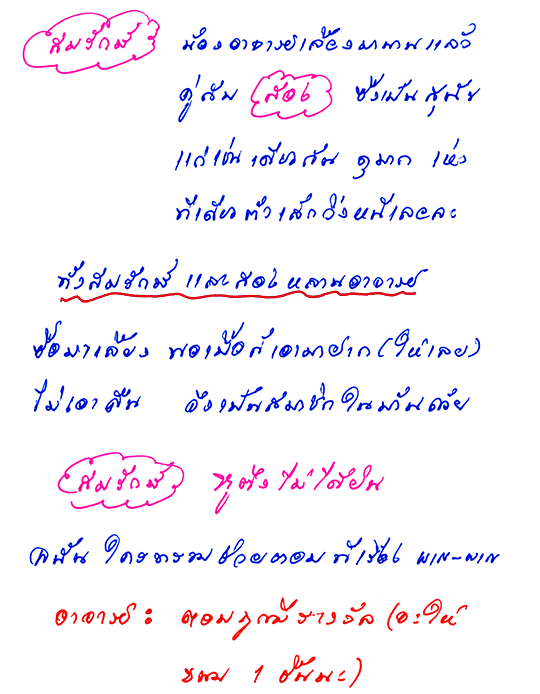 สมรักษ์ น้องอาจารย์เลี้ยงมานานแล้ว
คู่กับ สอง ซึ่งเป็นสุนัข
แก่เช่นเดียวกัน ดุมาก เห่า
ทีเดียวตัวเล็กวิ่งหนีเลยละ
ทั้งสมรักษ์ และสอง หลานอาจารย์
ซื้อมาเลี้ยง พอเบื่อก็เอามาฝาก (ให้เลย)
ไม่เอาคืน จึงเป็นสมาชิกในบ้านด้วย
สมรักษ์ หูตึงไม่ได้ยิน
ใครทราบช่วยตอบทีเรื่อง
อาจารย์ : ตอบถูกมีรางวัล (จะให้
ขนม 1 ชิ้นนะ)